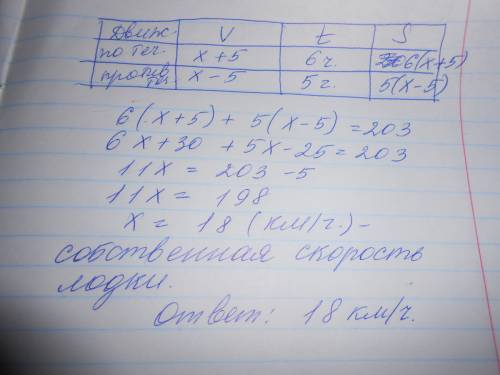 Движ. V t S
по теч. x+5 6 ч. 6(x+5)
против теч. x-5 5 ч. 5(x-5)
6(x+5) + 5(x-5) = 203
6x+30 + 5x-25 = 203
11x = 203 - 5
11x = 198
x = 18 (км/ч.) -
собственная скорость
лодки.
Ответ: 18 км/ч.